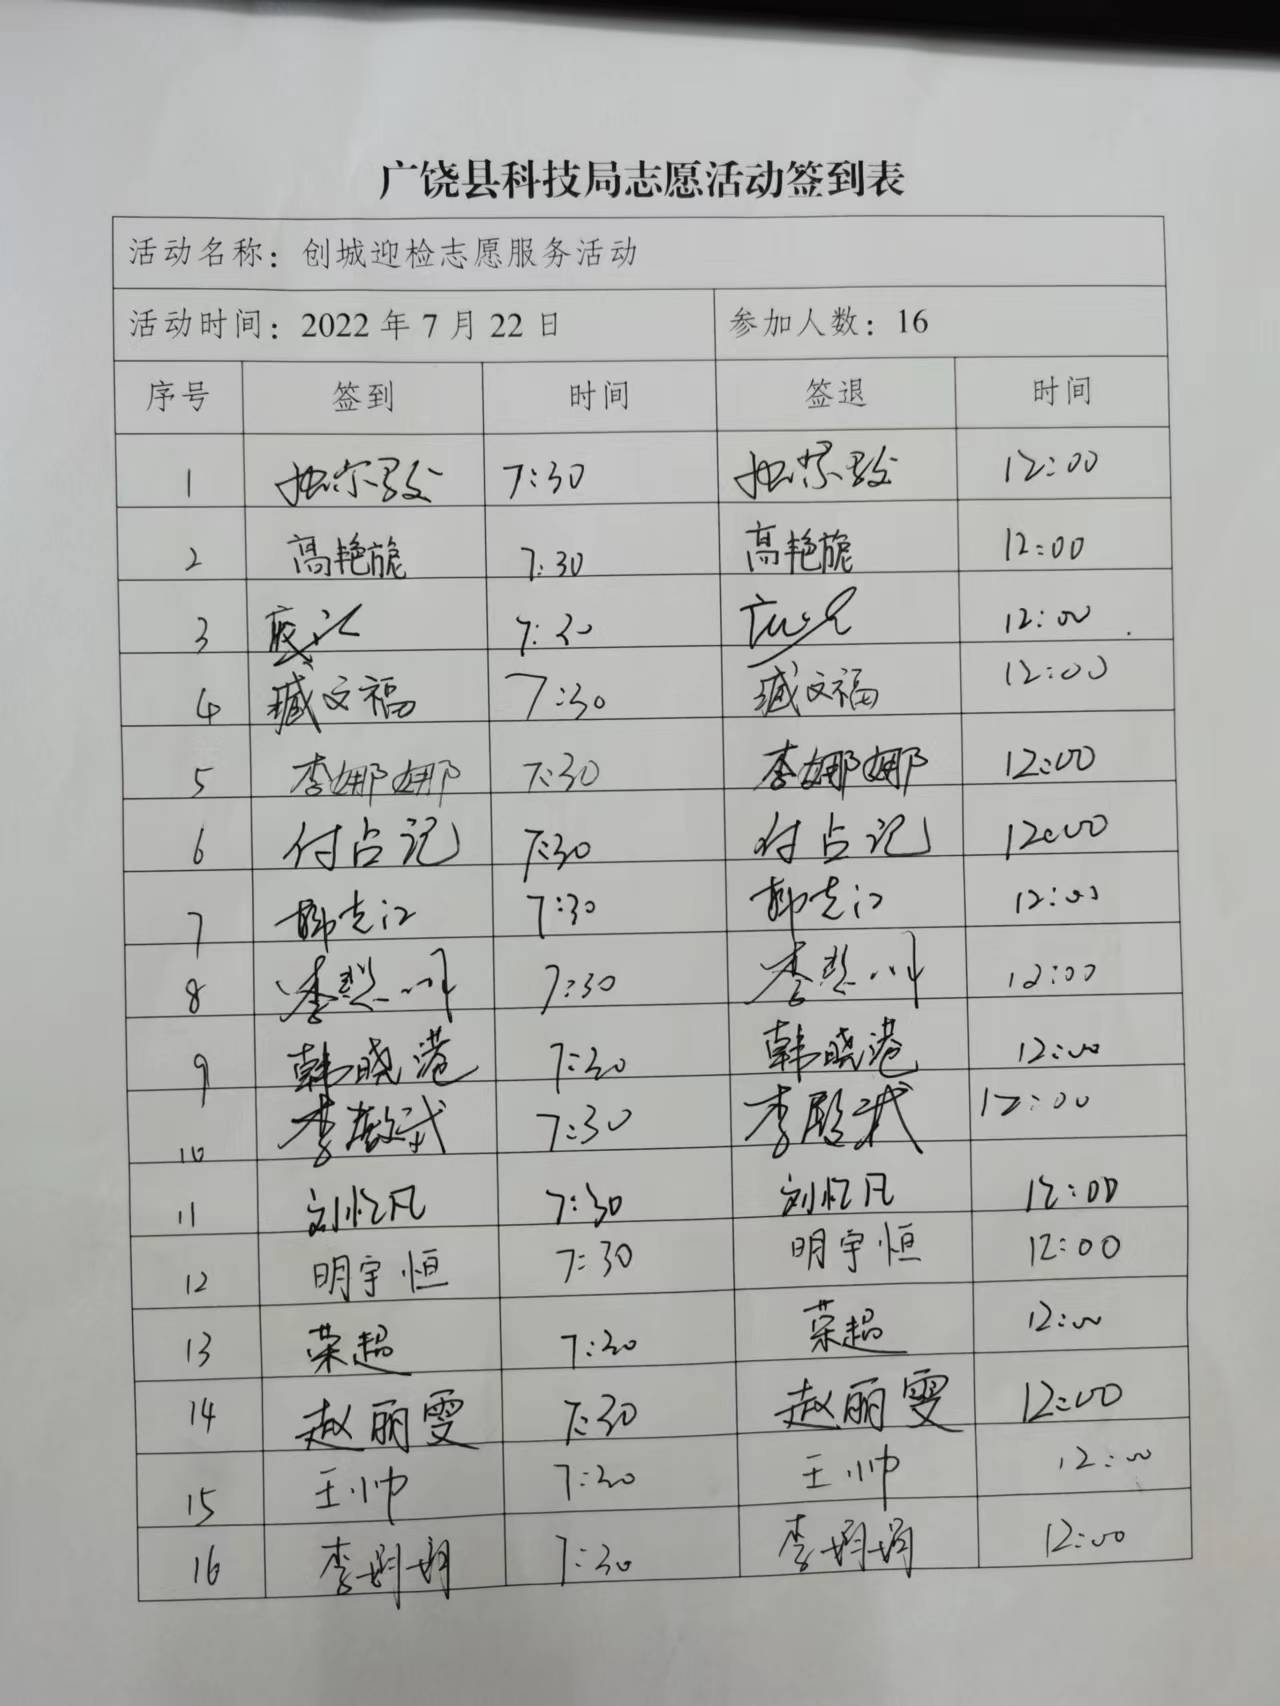 广饶县科技局志愿活动签到表
活动名称：创城迎检志愿服务活动
活动时间：2022年7月22日 参加人数：16
序号 签到 时间 签退 时间
1 7:30 12:00
2 高艳旎 7:30 12:00 高艳旎
3 7:30 12:00
4 臧文福 7:30 臧文福 12:00
5 李娜娜 7:30 李娜娜 12:00
6 付占记 7:30 付占记 12:00
7 7:30 12:00
8 7:30 12:00
9 韩晓港 7:30 韩晓港 12:00
10 李 7:30 李 12:00
11 刘忆凡 7:30 刘忆凡 12:00
12 明宇恒 7:30 明宇恒 12:00
13 荣超 7:30 荣超 12:00
14 赵丽雯 7:30 赵丽雯 12:00
15 王帅 7:30 王帅 12:00
16 李娟娟 7:30 李娟娟 12:00